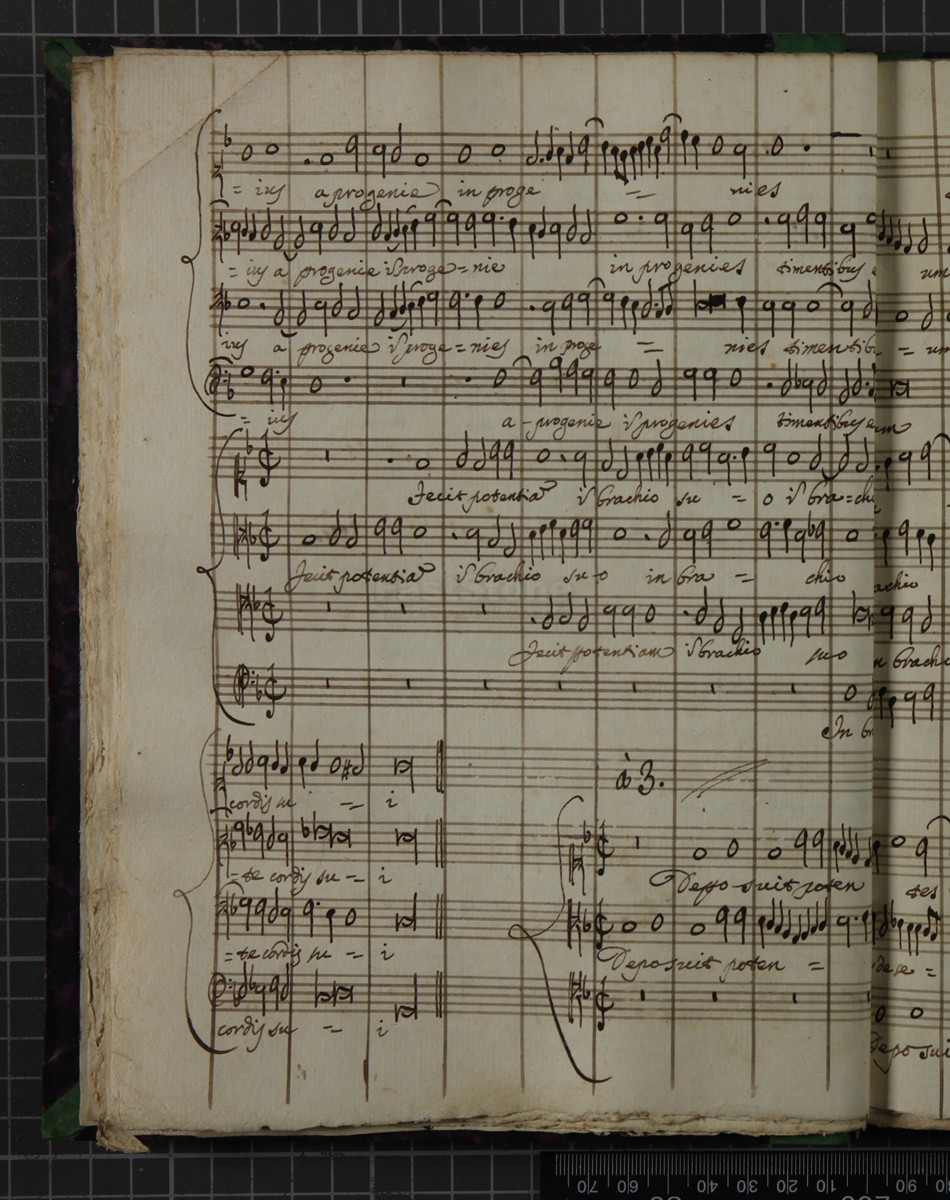 = ius a progenie in proge = nies
= ius a progenie i proge = nie in progenies timentibus e um
ius a progenie i proge = nies in proge = nies timentib = um
= ius a - progenie i progenies timentibus eum
fecit potentiā ī brachio su = o ī bra = chi
fecit potentiā ī brachio su o in bra = chio achio
fecit potentiam ī brachio suo n brachi
In br
cordis su = i
à 3.
= te cordis su = i
Deposuit poten tes
= te cordis su = i
Deposuit poten = de se =
cordis su = i
Depo sui
70 60 50 40 30 20 10 90